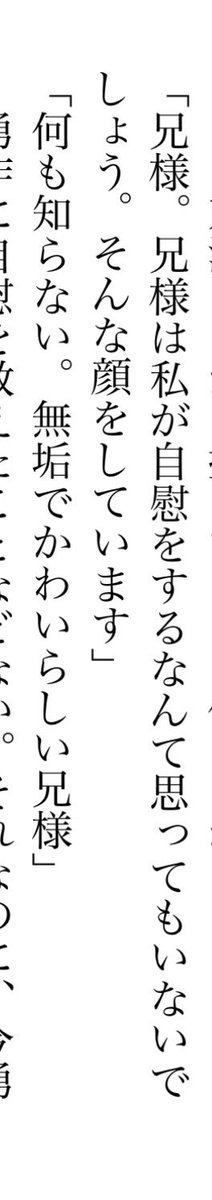 「兄様。兄様は私が自慰をするなんて思ってもいないで
しょう。そんな顔をしています」
「何も知らない。無垢でかわいらしい兄様」
勇作に自慰を教えたことなどない。それなのに、今勇